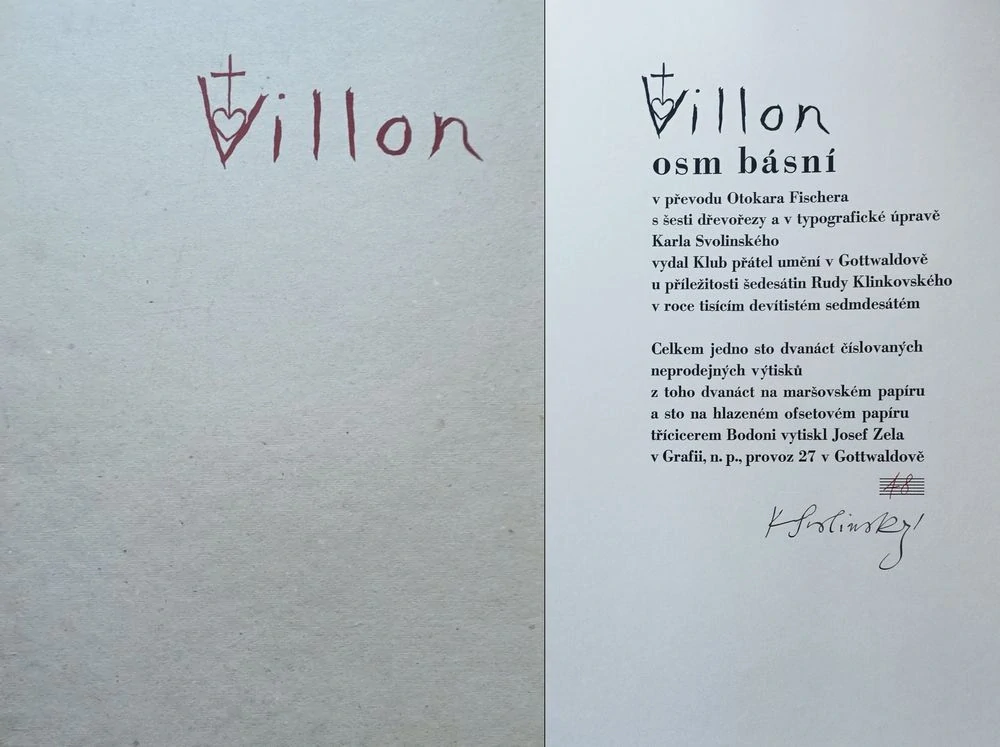 Villon
Villon
osm básní
v převodu Otokara Fischera
s šesti dřevořezy a v typografické úpravě
Karla Svolinského
vydal Klub přátel umění v Gottwaldově
u příležitosti šedesátin Rudy Klinkovského
v roce tisícím devítistém sedmdesátém
Celkem jedno sto dvanáct číslovaných
neprodejných výtisků
z toho dvanáct na maršovském papíru
a sto na hlazeném ofsetovém papíru
třícicerem Bodoni vytiskl Josef Zela
v Grafii, n. p., provoz 27 v Gottwaldově
48
K Svolinský